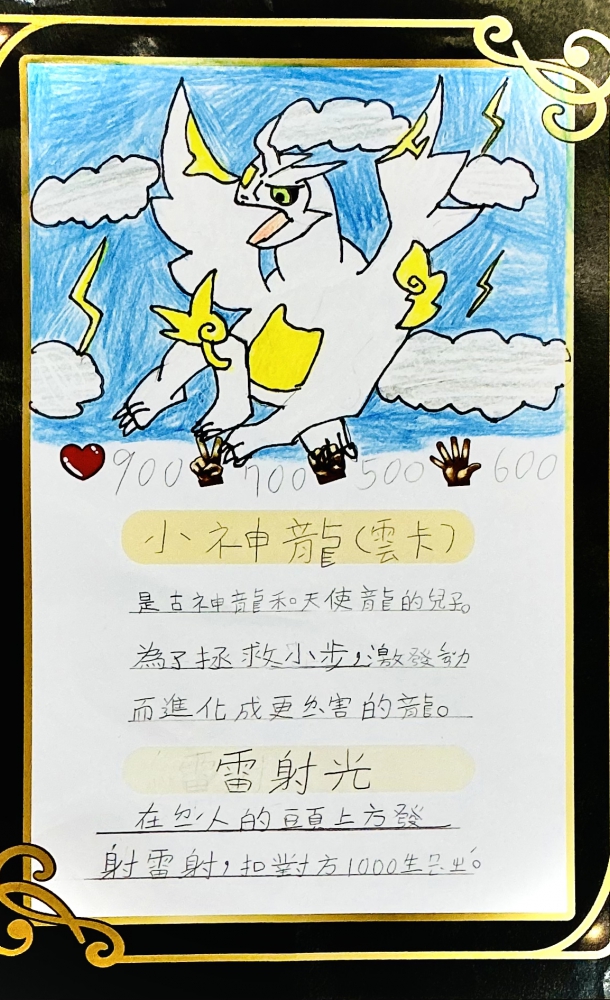 900 700 500 600
小神龍(雲卡)
是古神龍和天使龍的兒子。
為了拯救小步,激發
而進化成更害的龍。
雷射光
在人的頭上方發
射雷射,扣對方1000生